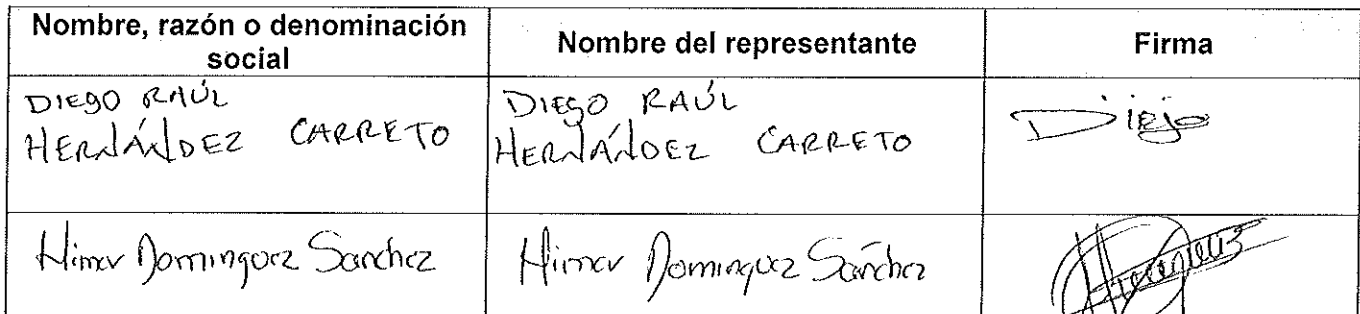 Nombre, razón o denominación social
Nombre del representante
Firma
DIEGO RAÚL
HERNÁNDEZ CARRETO
DIEGO RAÚL
HERNÁNDEZ CARRETO
Diego
Himer Dominguez Sanchez
Himer Dominguez Sanchez